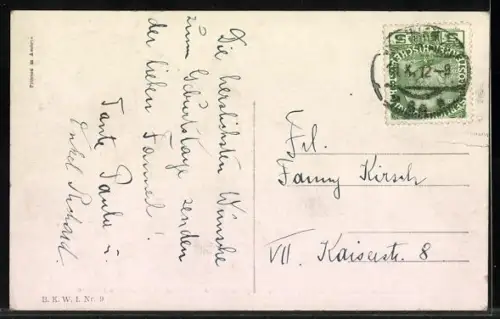 Die herzlichsten Wünsche
zum Geburtstage senden
der lieben
Tante Paula u.
Onkel Richard.
Frl.
Fanny Kirsch
VII. Kaiserstr. 8
B. K. W. I. Nr. 9